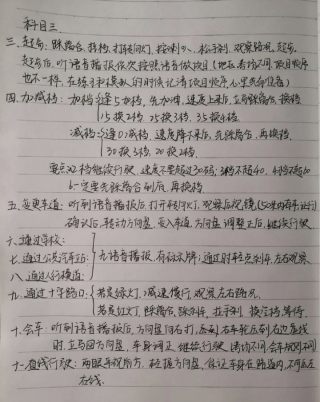 科目三
三、起步：踩离合，挂档，打转向灯，按喇叭，松手刹，观察路况，起步。
起步后，听语音播报依次按照语音做项目（地区考场不同，项目顺序
也不一样，在练车和模拟的时候记清项目顺序，心里要有准备）
四、加减档：加档 逢5加档，先加速，速度上来后，立即踩离合，换档
15换2档，25换3档，35换4档
减档 逢0减档，速度降下来后，先踩离合，再换档
30换3档，20换2档
要点：2档继续行驶，速度不要超过30码，3档不超40，
一定要先踩离合刹后，再换档
五、变更车道：听到语音播报后，打开转向灯，观察后视镜（50米内有车让行）
确认后，转动方向盘，变入车道，方向盘调整正后，继续行驶
六、通过学校：
七、通过公共汽车站： 无语音播报，有标示牌；通过时轻点刹车，左右观察
八、通过人行横道
九、通过十字路口： 若是绿灯，减速慢行，观察左右路况
若是红灯，踩离合，踩刹车，拉手刹，换空档等待。
十、会车：听到语音播报后，方向盘向右打，压到右车轮压到右边基线
时，立马回方向盘，车身调正，继续行驶
十一、直线行驶：两眼平视前方，轻握方向盘，保证车身在路道内，不可压左
右线